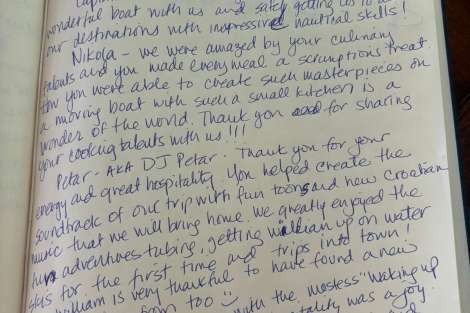 wonderful boat with us and safely getting us to all
our destinations with impressive nautical skills!
Nikola - we were amazed by your culinary
talents and you made every meal a scrumptious treat.
How you were able to create such masterpieces on
a moving boat with such a small kitchen is a
wonder of the world. Thank you for sharing
your cooking talents with us!!!
Petar - AKA DJ Petar. Thank you for your
energy and great hospitality. You helped create the
soundtrack of our trip with fun toons and new Croatian
music that we will bring home. We greatly enjoyed the
fun adventures tubing, getting William up on water
skis for the first time and trips into town!
William is very thankful to have found a new
from too
with the mostess "Waking up
was a joy.